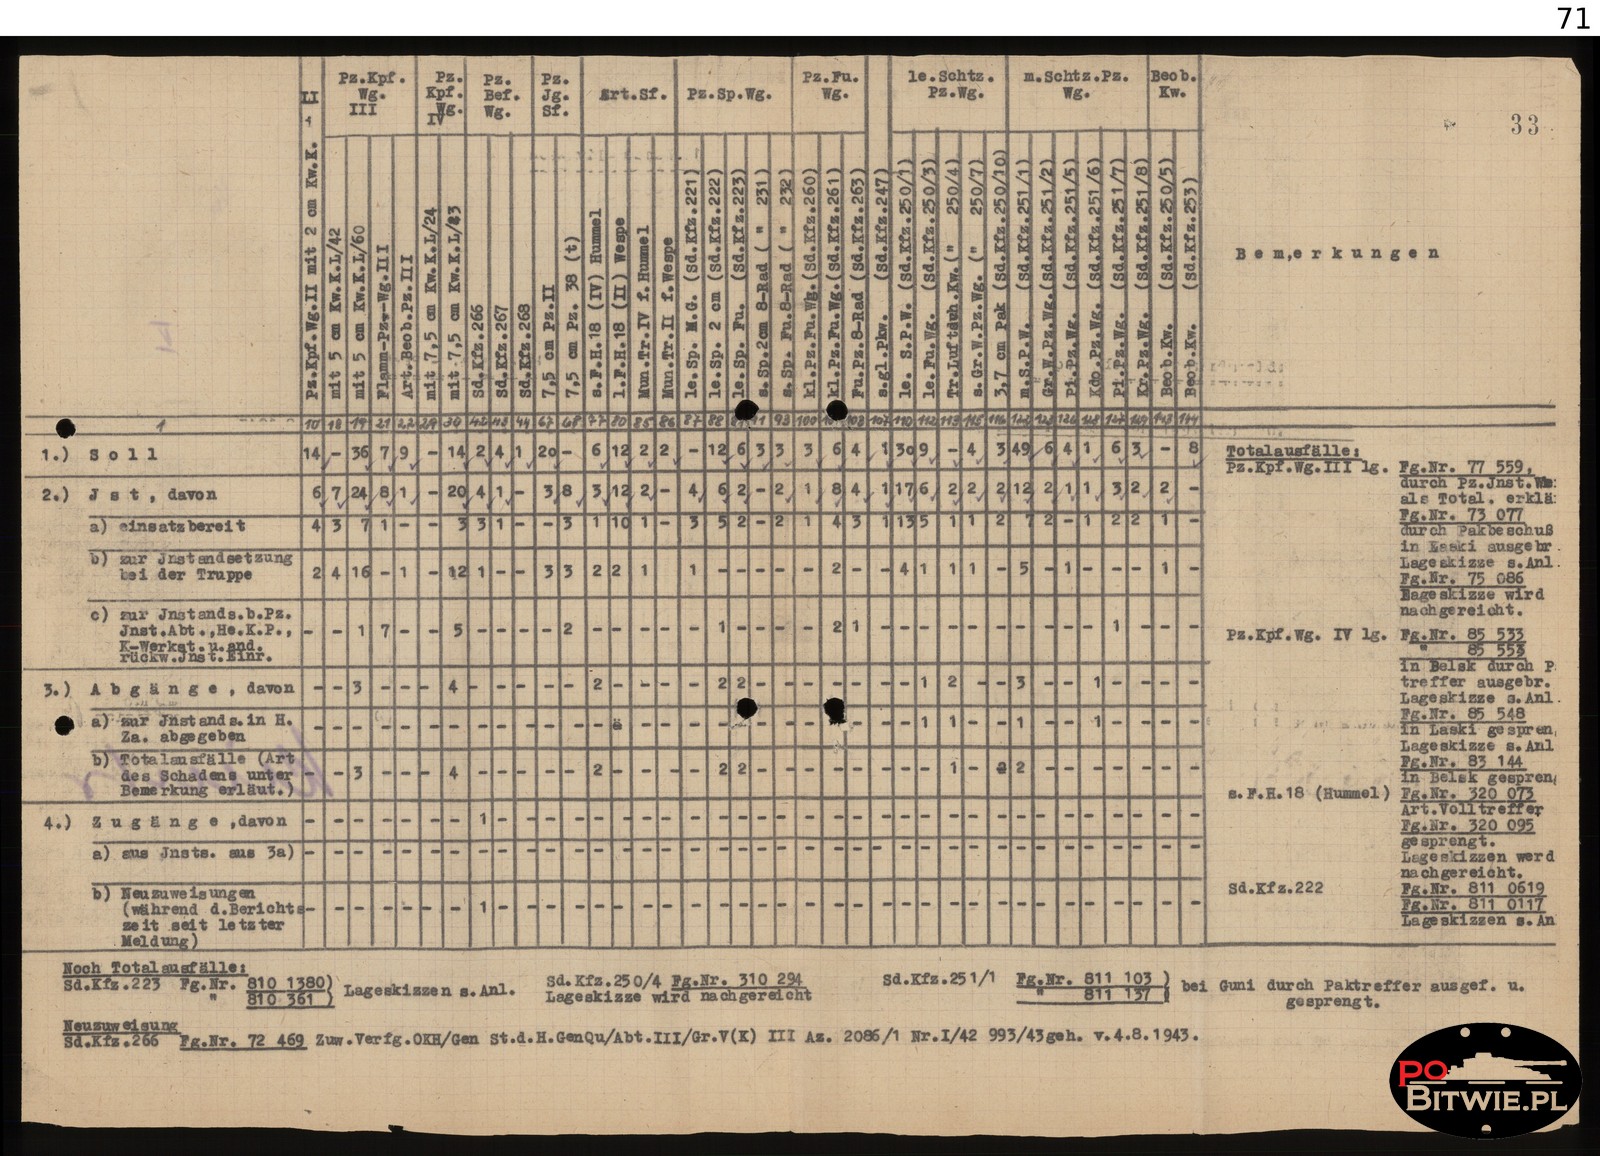 71
33
Pz.Kpf. Wg. III
Pz. Kpf. Wg. IV
Pz. Bef. Wg.
Pz. Jg. Sf.
Art.Sf.
Pz.Sp.Wg.
Pz.Fu. Wg.
le.Schtz. Pz.Wg.
m.Schtz.Pz. Wg.
Beob. Kw.
Pz.Kpf.Wg.II mit 2 cm Kw.K.
mit 5 cm Kw.K.L/42
mit 5 cm Kw.K.L/60
Flamm-Pz.-Wg.III
Art.Beob.Pz.III
mit 7,5 cm Kw.K.L/24
mit 7,5 cm Kw.K.L/43
Sd.Kfz.266
Sd.Kfz.267
Sd.Kfz.268
7,5 cm Pz.II
7,5 cm Pz. 38 (t)
s.F.H.18 (IV) Hummel
l.F.H.18 (II) Wespe
Mun.Tr.IV f.Hummel
Mun.Tr.II f.Wespe
le.Sp. M.G. (Sd.Kfz.221)
le.Sp. 2 cm (Sd.Kfz.222)
le.Sp. Fu. (Sd.Kfz.223)
s.Sp.2cm 8-Rad ( " 231)
s.Sp. Fu.8-Rad ( " 232)
kl.Pz.Fu.Wg.(Sd.Kfz.260)
kl.Pz.Fu.Wg.(Sd.Kfz.261)
Fu.Pz.8-Rad (Sd.Kfz.263)
s.gl.Pkw. (Sd.Kfz.247)
le. S.P.W. (Sd.Kfz.250/1)
le.Fu.Wg. (Sd.Kfz.250/3)
Tr.Luftsch.Kw.( " 250/4)
s.Gr.W.Pz.Wg. (" 250/7)
3,7 cm Pak (Sd.Kfz.250/10)
m.S.P.W. (Sd.Kfz.251/1)
Gr.W.Pz.Wg.(Sd.Kfz.251/2)
Pi.Pz.Wg. (Sd.Kfz.251/5)
Kdo.Pz.Wg. (Sd.Kfz.251/6)
Pi.Pz.Wg. (Sd.Kfz.251/7)
Kr.Pz.Wg. (Sd.Kfz.251/8)
Beob.Kw. (Sd.Kfz.250/5)
Beob.Kw. (Sd.Kfz.253)
Bemerkungen
1 10 18 19 21 22
1.) Soll 14 - 36 7 9 - 14 2 4 1 20 - 6 12 2 2 - 12 6 3 3 3 6 4 1 30 9 - 4 3 49 6 4 1 6 3 - 8
2.) Jst, davon 6 7 24 8 1 - 20 4 1 - 3 8 3 12 2 - 4 6 2 - 2 1 8 4 1 17 6 2 2 2 12 2 1 1 3 2 2 -
a) einsatzbereit 4 3 7 1 - - 3 3 1 - - 3 1 10 1 - 3 5 2 - 2 1 4 3 1 13 5 1 1 2 7 2 - 1 2 2 1 -
b) zur Jnstandsetzung
bei der Truppe 2 4 16 - 1 - 12 1 - - 3 3 2 2 1 1 - - - - - 2 - - 4 1 1 1 - 5 - 1 - - - 1 -
c) zur Jnstands.b.Pz.
Jnst.Abt.,He.K.P.,
K-Werkst.u.and.
rückw.Jnst.Einr. - - 1 7 - - 5 - - - - 2 - - - - - 1 - - - - 2 1 - - - - - - - - - - 1 - - -
3.) Abgänge, davon - - 3 - - - 4 - - - - - 2 - - - - 2 2 - - - - - - - 1 2 - - 3 - - 1 - - - -
a) zur Jnstands.in H.
Za. abgegeben - - - - - - - - - - - - - - - - - - - - - - - - - 1 1 - - 1 - - 1 - - - -
b) Totalausfälle (Art
des Schadens unter
Bemerkung erläut.) - - 3 - - - 4 - - - - - 2 - - - - 2 2 - - - - - - - - 1 - 2 - - - - - - -
4.) Zugänge, davon - - - - - - - 1 - - - - - - - - - - - - - - - - - - - - - - - - - - - - - -
a) aus Jnsts. aus 3a) - - - - - - - - - - - - - - - - - - - - - - - - - - - - - - - - - - - - - -
b) Neuzuweisungen
(während d.Berichts- - - - - - - - 1 - - - - - - - - - - - - - - - - - - - - - - - - - - - - - -
zeit seit letzter
Meldung)
Totalausfälle:
Pz.Kpf.Wg.III lg. Fg.Nr. 77 559,
durch Pz.Jnst.
als Total. erklä
Fg.Nr. 73 077
durch Pakbeschuß
in Laski ausgebr.
Lageskizze s.Anl.
Fg.Nr. 75 086
Lageskizze wird
nachgereicht.
Pz.Kpf.Wg. IV lg. Fg.Nr. 85 533
" 85 553
in Belsk durch P
treffer ausgebr.
Lageskizze s.Anl.
Fg.Nr. 85 548
in Laski gespren
Lageskizze s.Anl
Fg.Nr. 83 144
in Belsk gespren
s.F.H.18 (Hummel) Fg.Nr. 320 073
Art.Volltreffer
Fg.Nr. 320 095
gesprengt.
Lageskizzen werd
nachgereicht.
Sd.Kfz.222 Fg.Nr. 811 0619
Fg.Nr. 811 0117
Lageskizzen s.An
Noch Totalausfälle:
Sd.Kfz.223 Fg.Nr. 810 1380)
" 810 361 ) Lageskizzen s.Anl.
Sd.Kfz.250/4 Fg.Nr. 310 294
Lageskizze wird nachgereicht
Sd.Kfz.251/1 Fg.Nr. 811 103 )
" 811 137 ) bei Guni durch Paktreffer ausgef. u.
gesprengt.
Neuzuweisung
Sd.Kfz.266 Fg.Nr. 72 469 Zuw.Verfg.OKH/Gen St.d.H.GenQu/Abt.III/Gr.V(K) III Az. 2086/1 Nr.I/42 993/43geh. v.4.8.1943.
PO
BITWIE.PL